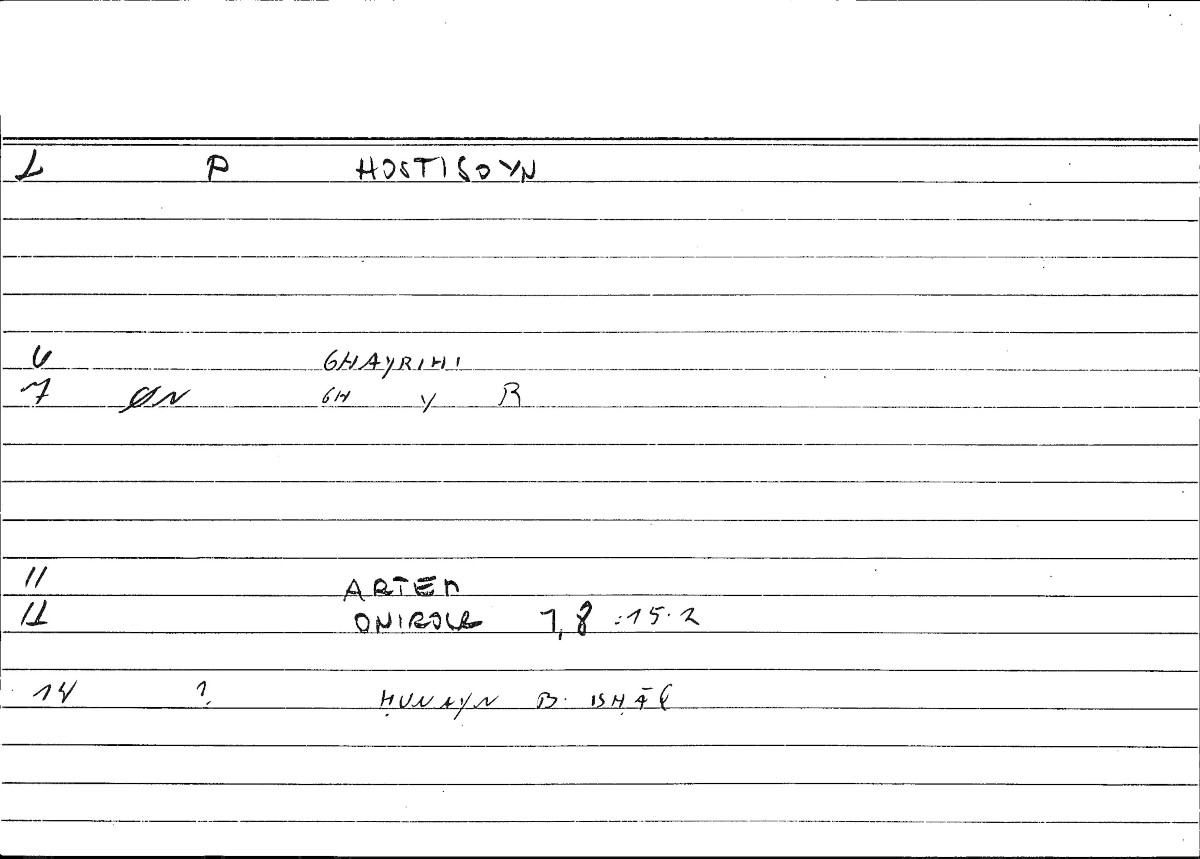 1 P HOSTISOYN
6 GHAYRIHI
7 ØN GH Y R
11 ARTEM
12 ONIROCR 1,8 :15.2
14 ? ḤUNAYN B. ISḤĀQ